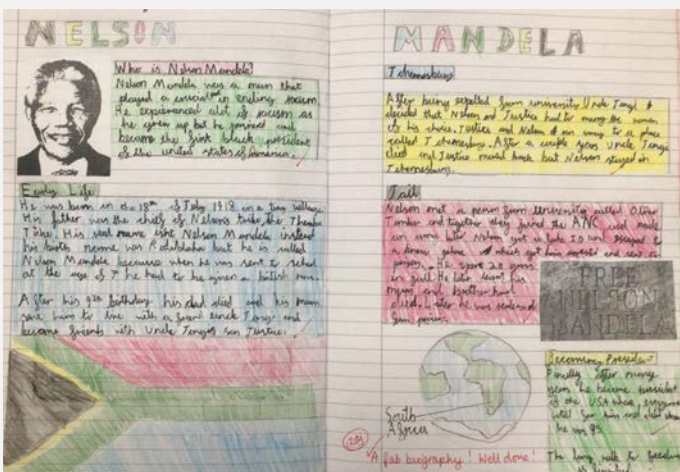 NELSON
Who is Nelson Mandela?
Nelson Mandela was a man that
played a crucial in ending racism.
He experienced alot of racism as
he grew up but he and
became the first black president
of the united states of
Early Life
He was born on the 18th of July 1918 in a tiny village
His father was the chief of Nelsons tribe the
Tribe. His name isnt Nelson Mandela instead
his birth name was but he is called
Nelson Mandela because when he was sent to school
at the age of 7 he had to be given a british
After his 9th birthday his dad died and his mum
him to live with a friend Uncle and
became friends with Uncle son Justice.
MANDELA
After being expelled from university Uncle
decided that Nelson and Justice had to marry the women
of his choice. Justice and Nelson ran away to a place
called After a couple years Uncle
died and Justice moved back but Nelson stayed in
Jail
Nelson met a person from university called
and together they joined the ANC and made
an army. Later Nelson got a fake ID and
which got him arrested and sent to
prison. He spent 28 years
in jail He later learnt his
mum and brother had
died. Later he was released
from prison.
FREE
NELSON
MANDELA
South
Africa
Becoming President
Finally after many
years he became president
of the USA where everyone
him until
he was 95.
The long walk to freedom
A fab biography! Well done!